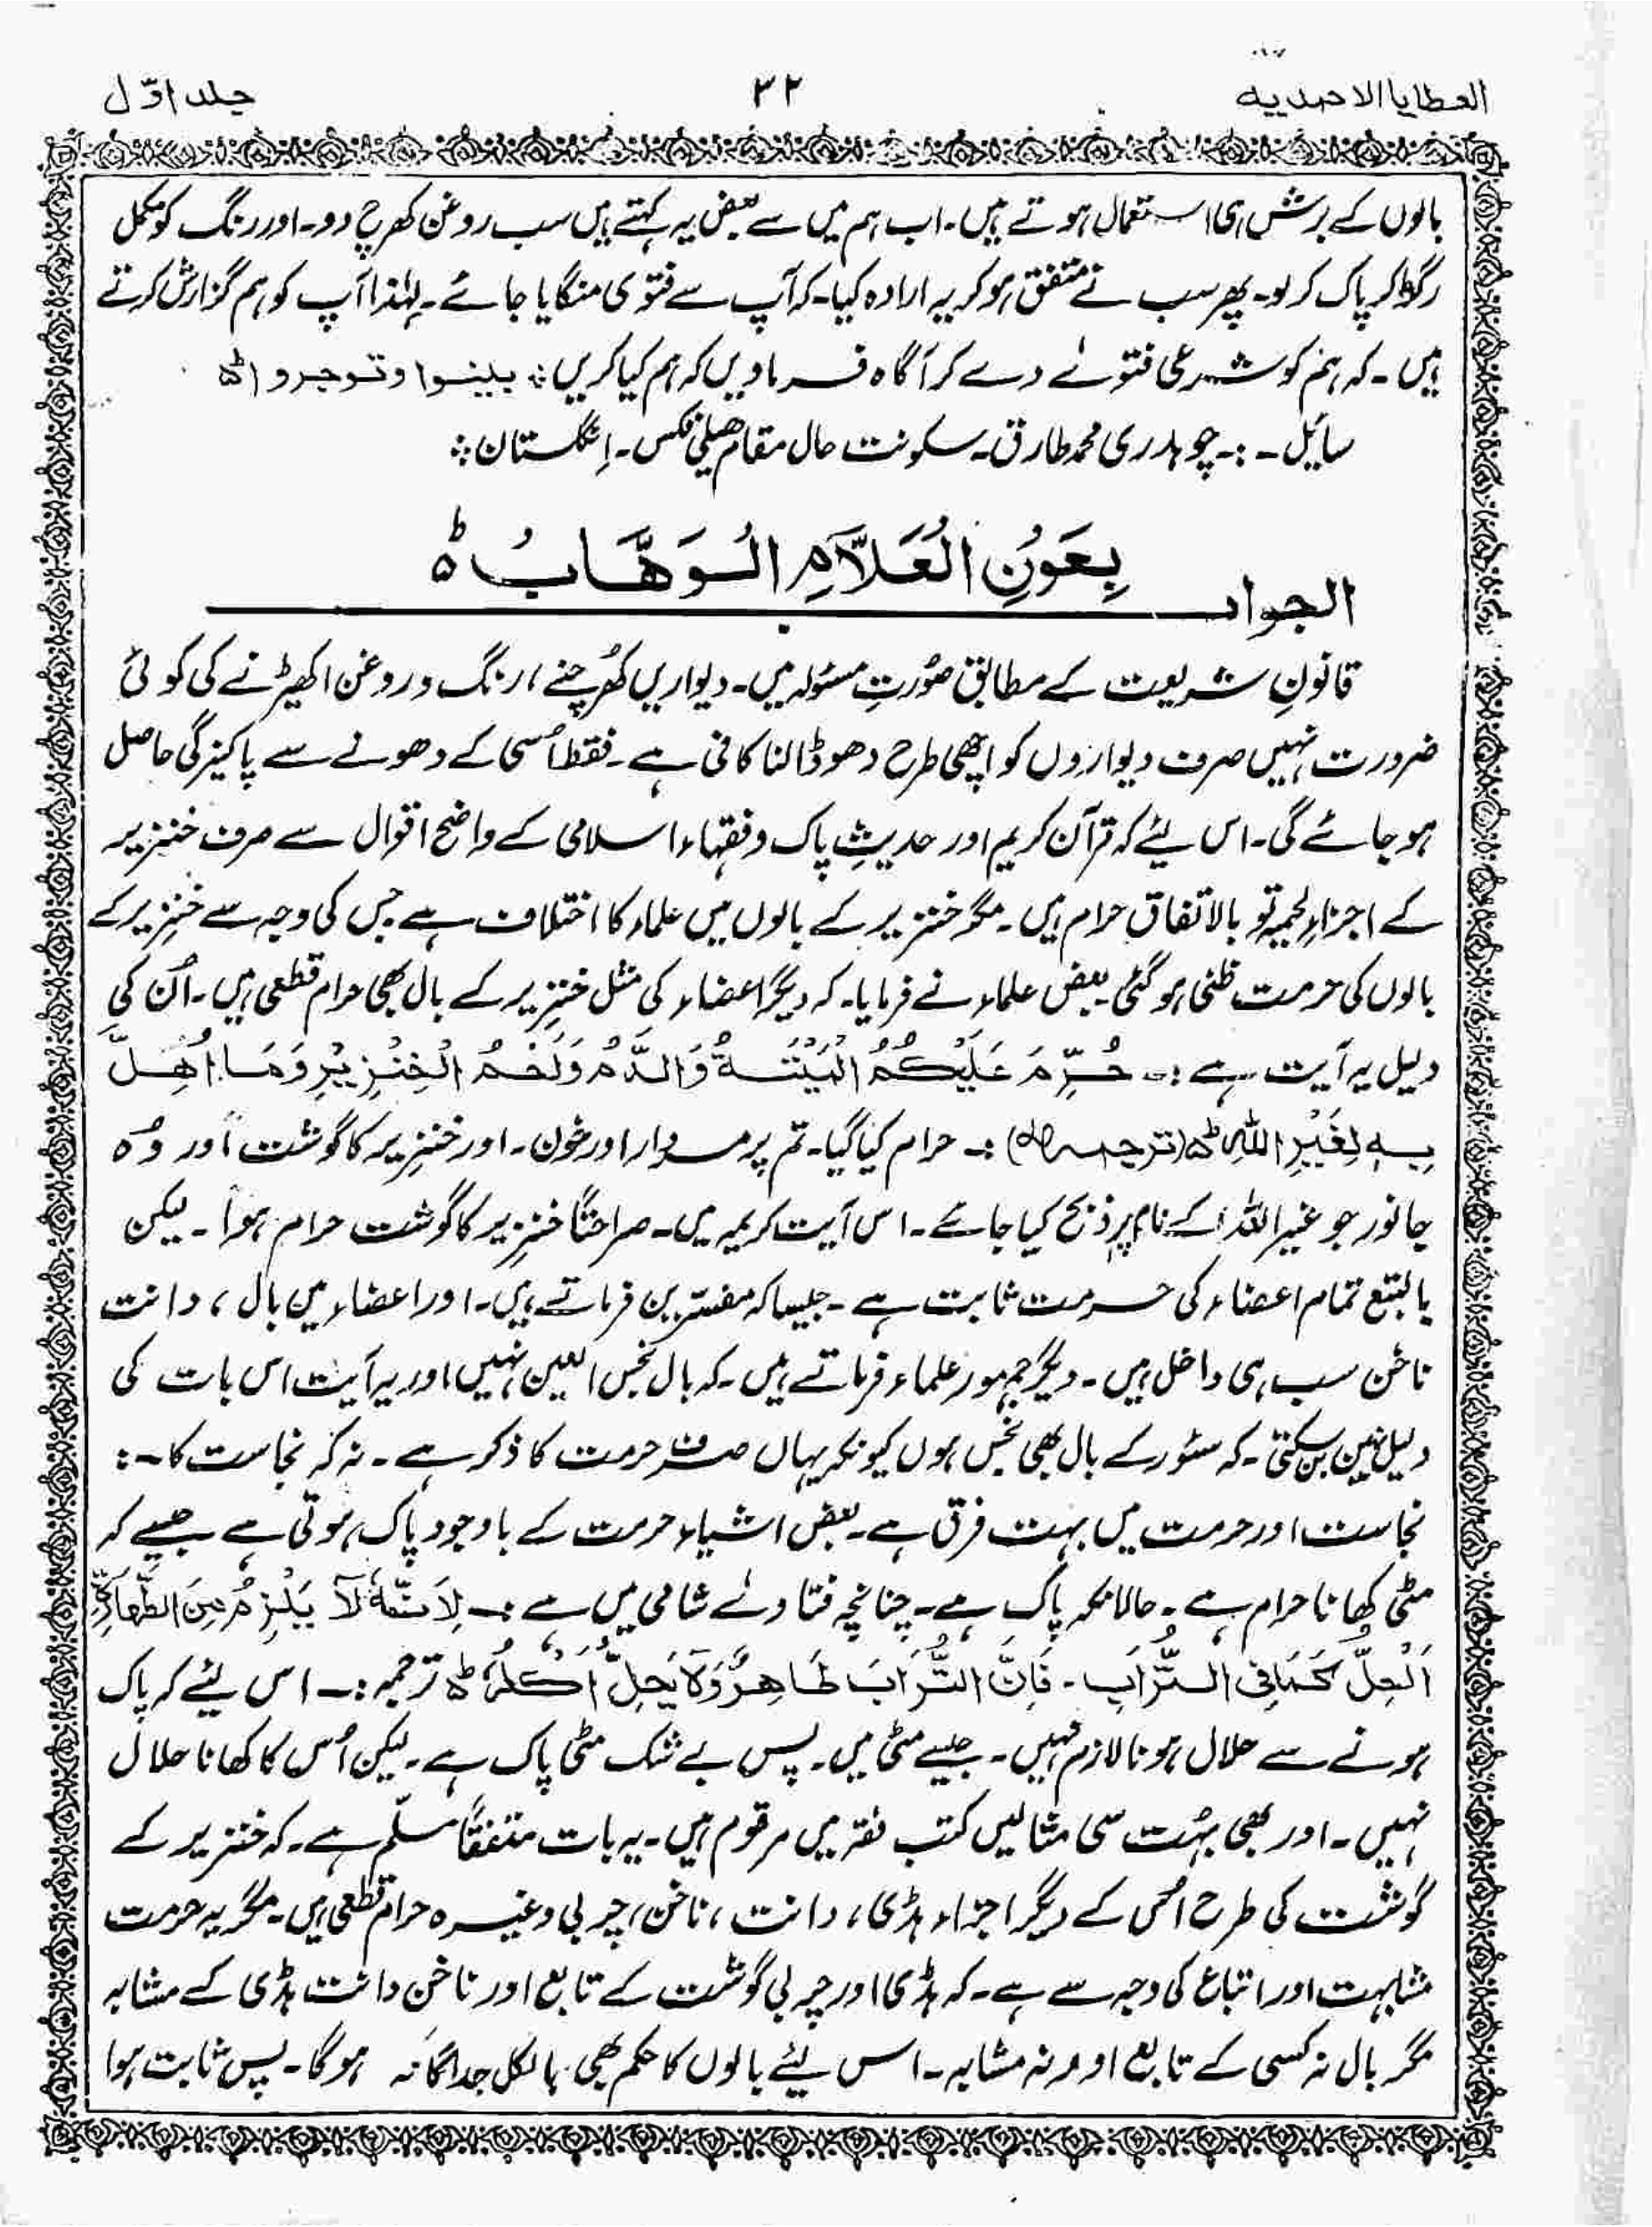 العطایا الاحمدیه
۳۲
جلد اوّل
بالوں کے برش ہی استعمال ہوتے ہیں۔ اب ہم میں سے بعض یہ کہتے ہیں سب روغن کھرچ دو۔ اور رنگ کو مکمل
رگڑ کر پاک کر لو۔ پھر سب نے متفق ہو کر یہ ارادہ کیا۔ کہ آپ سے فتوی منگایا جائے۔ لہٰذا آپ کو ہم گزارش کرتے
ہیں۔ کہ ہم کو شرعی فتوٰے دے کر آگاہ فرما دیں کہ ہم کیا کریں ؞ بینوا وتوجروا ؕ
سایٔل :۔ چوہدری محمد طارق۔ سکونت حال مقام ہیلی فکس۔ اِنگلستان ؞
الجواب
بِعَوْنِ الْعَلَّامِ الْوَهَّابْ ؕ
قانونِ شریعت کے مطابق صُورتِ مسئولہ میں۔ دیواریں کُھرچنے، رنگ و روغن اکھیڑنے کی کوئی
ضرورت نہیں صرف دیواروں کو اچھی طرح دھو ڈالنا کافی ہے۔ فقط اُسی کے دھونے سے پاکیزگی حاصل
ہو جائے گی۔ اس لیئے کہ قرآن کریم اور حدیثِ پاک و فقہاء اسلامی کے واضح اقوال سے صرف خنزیر
کے اجزاءِ لحمیہ تو بالاتفاق حرام ہیں۔ مگر خنزیر کے بالوں میں علماء کا اختلاف ہے جس کی وجہ سے خنزیر کے
بالوں کی حرمت ظنی ہو گئی بعض علماء نے فرمایا۔ کہ دیگر اعضاء کی مثل خنزیر کے بال بھی حرام قطعی ہیں۔ اُن کی
دلیل یہ آیت ہے :۔ حُرِّمَ عَلَيْكُمُ الْمَيْتَةُ وَالدَّمُ وَلَحْمُ الْخِنْزِيْرِ وَمَا اُهِلَّ
بِهٖ لِغَيْرِ اللهِ ؕ (ترجمہ) :۔ حرام کیا گیا۔ تم پر مردار اور خون۔ اور خنزیر کا گوشت اَور وُہ
جانور جو غیر اللہ کے نام پر ذبح کیا جائے۔ اس آیت کریمہ میں۔ صراحتاً خنزیر کا گوشت حرام ہوا۔ لیکن
بالتبع تمام اعضاء کی حرمت ثابت ہے۔ جیسا کہ مفسّرین فرماتے ہیں۔ اور اعضاء میں بال، دانت
ناخن سب ہی داخل ہیں۔ دیگر جمہور علماء فرماتے ہیں۔ کہ بال نجس العین نہیں اور یہ آیت اس بات کی
دلیل نہیں بن سکتی۔ کہ سؤر کے بال بھی نجس ہوں کیونکہ یہاں صرف حرمت کا ذکر ہے۔ نہ کہ نجاست کا :۔
نجاست اور حرمت میں بہت فرق ہے۔ بعض اشیاء حرمت کے باوجود پاک ہوتی ہے جیسے کہ
مٹی کھانا حرام ہے۔ حالانکہ پاک ہے۔ چنانچہ فتاوٰے شامی میں ہے :۔ لِاَنَّهٗ لَا يَلْزِمُ مِنَ الطَّهَارَةِ
اَلْحِلُّ كَمَا فِى التُّرَابِ۔ فَاِنَّ التُّرَابَ طَاهِرٌ وَلَا يَحِلُّ اَكْلُهٗ ؕ ترجمہ :۔ اس لیئے کہ پاک
ہونے سے حلال ہونا لازم نہیں۔ جیسے مٹی میں۔ پس بے شک مٹی پاک ہے۔ لیکن اُس کا کھانا حلال
نہیں۔ اور بھی بہُت سی مثالیں کتب فقہ میں مرقوم ہیں۔ یہ بات متفقاً مسلّم ہے۔ کہ خنزیر کے
گوشت کی طرح اُس کے دیگر اجزاء ہڈی، دانت، ناخن، چربی وغیرہ حرام قطعی ہیں۔ مگر یہ حرمت
مشابہت اور اتباع کی وجہ سے ہے۔ کہ ہڈی اور چربی گوشت کے تابع اور ناخن دانت ہڈی کے مشابہ
مگر بال نہ کسی کے تابع اور نہ مشابہ۔ اس لیئے بالوں کا حکم بھی بالکل جداگانہ ہوگا۔ پس ثابت ہوا